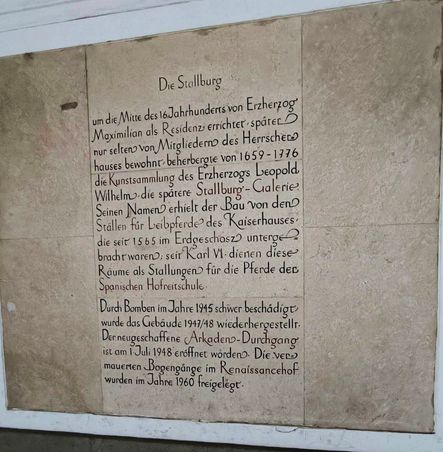 Die Stallburg
um die Mitte des 16. Jahrhunderts von Erzherzog
Maximilian als Residenz errichtet, später
nur selten von Mitgliedern des Herrscher
hauses bewohnt, beherbergte von 1659-1776
die Kunstsammlung des Erzherzogs Leopold
Wilhelm, die spätere Stallburg-Galerie.
Seinen Namen erhielt der Bau von den
Ställen für Leibpferde des Kaiserhauses,
die seit 1565 im Erdgeschosz unterge
bracht waren; seit Karl VI. dienen diese
Räume als Stallungen für die Pferde der
Spanischen Hofreitschule.
Durch Bomben im Jahre 1945 schwer beschädigt,
wurde das Gebäude 1947/48 wiederhergestellt.
Der neugeschaffene Arkaden-Durchgang
ist am 1. Juli 1948 eröffnet worden. Die ver
mauerten Bogengänge im Renaissancehof
wurden im Jahre 1960 freigelegt.